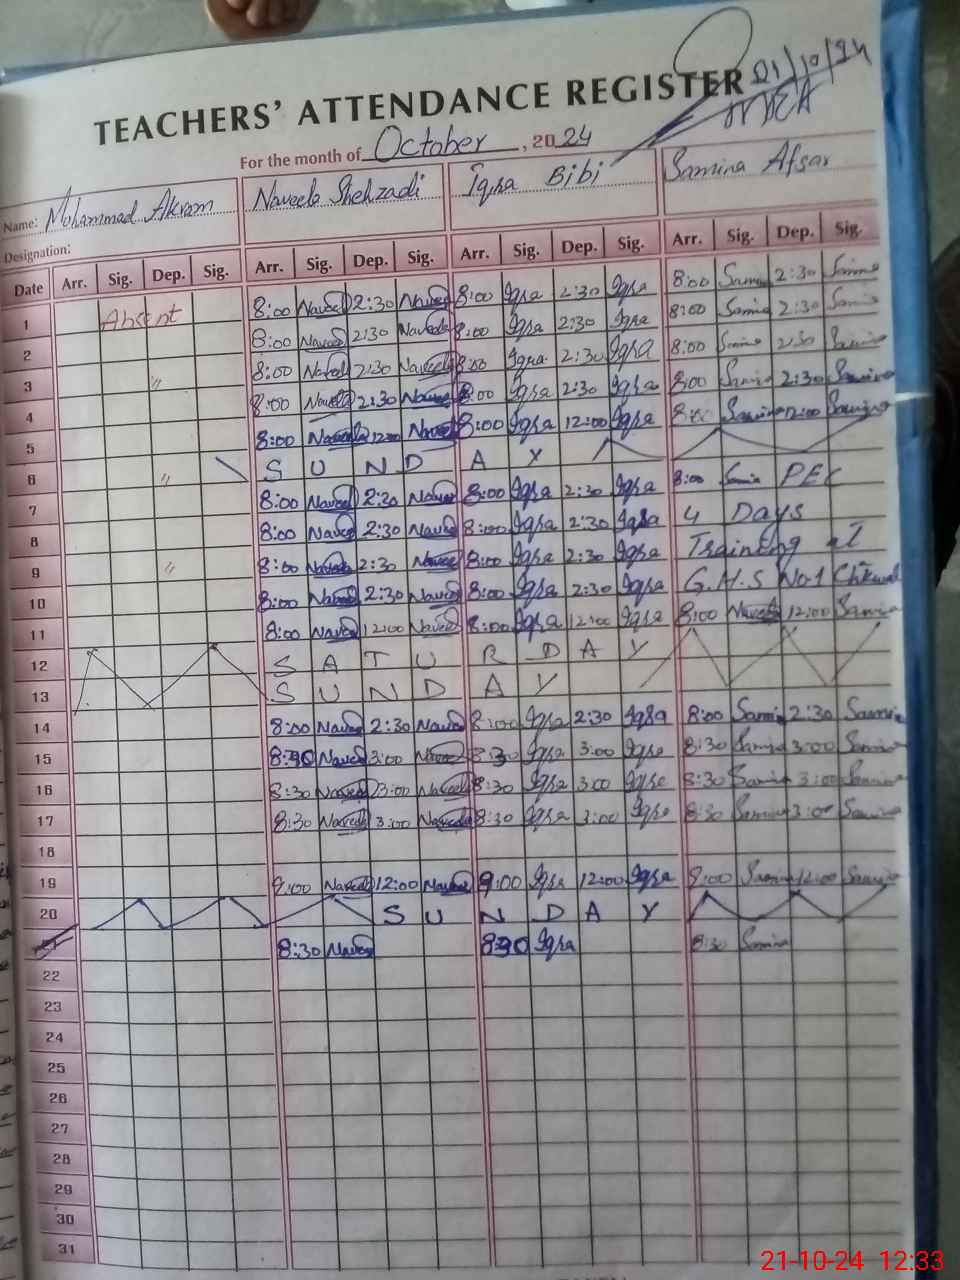 21/10/24
TEACHERS' ATTENDANCE REGISTER
For the month of October, 2024
Name: Mohammad Akram Naveela Shehzadi Iqra Bibi Samina Afsar
Designation:
Date Arr. Sig. Dep. Sig. Arr. Sig. Dep. Sig. Arr. Sig. Dep. Sig. Arr. Sig. Dep. Sig.
1 Absent 8:00 Naveed 2:30 Naveed 8:00 Iqra 2:30 Iqra 8:00 Samina 2:30 Samina
2 8:00 Naveed 2:30 Naveeda 8:00 Iqra 2:30 Iqra 8:00 Samina 2:30 Samina
3 " 8:00 2:30 8:00 Iqra 2:30 Iqra 8:00 Samina 2:30 Samina
4 8:00 2:30 8:00 Iqra 2:30 Iqra 8:00 Samina 2:30 Samina
5 8:00 12:00 8:00 Iqra 12:00 Iqra 8:00 Samina 12:00 Samina
6 " S U N D A Y
7 8:00 Naveed 2:30 8:00 Iqra 2:30 Iqra 8:00 PEC
8 8:00 Naveed 2:30 Naveed 8:00 Iqra 2:30 Iqra 4 Days
9 " 8:00 2:30 8:00 Iqra 2:30 Iqra Training at
10 8:00 2:30 8:00 Iqra 2:30 Iqra G.H.S No.1 Chkwal
11 8:00 Naveed 12:00 Naveed 8:00 Iqra 12:00 Iqra 8:00 12:00 Samina
12 S A T U R D A Y
13 S U N D A Y
14 8:00 Naveed 2:30 Naveed 8:00 Iqra 2:30 Iqra 8:00 Samina 2:30 Samina
15 8:30 Naveed 3:00 8:30 Iqra 3:00 Iqra 8:30 Samina 3:00 Samina
16 8:30 3:00 8:30 Iqra 3:00 Iqra 8:30 Samina 3:00 Samina
17 8:30 3:00 8:30 Iqra 3:00 Iqra 8:30 Samina 3:00 Samina
18
19 9:00 12:00 9:00 Iqra 12:00 Iqra 9:00 Samina 12:00 Samina
20 S U N D A Y
21 8:30 Naveed 8:30 Iqra 8:30 Samina
22
23
24
25
26
27
28
29
30
31
21-10-24 12:33